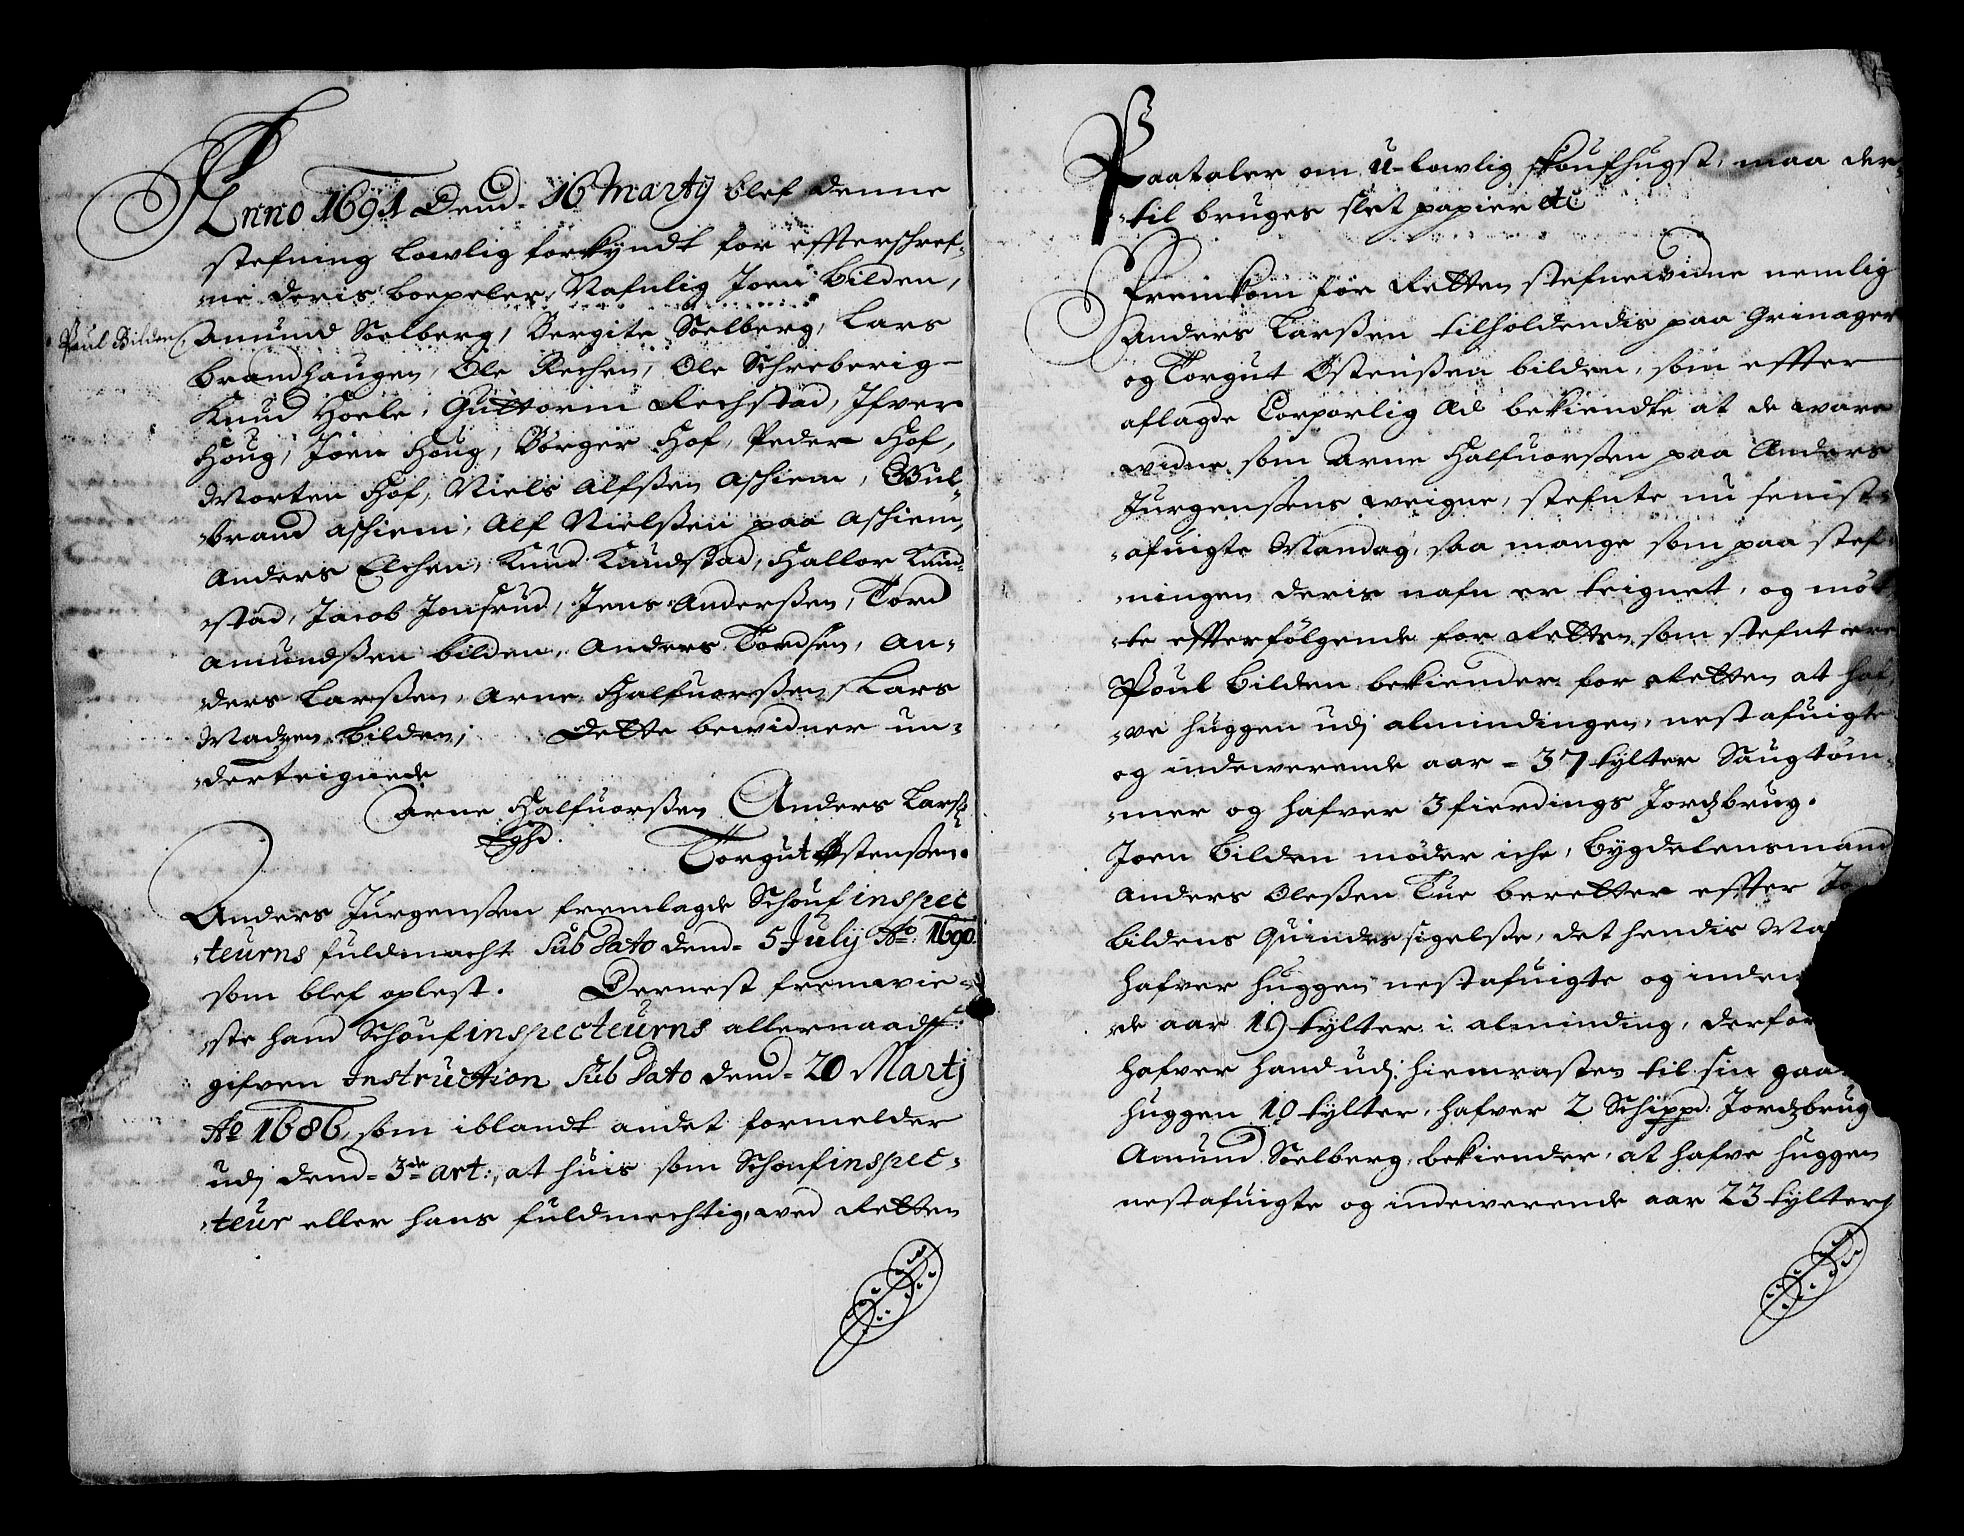 Anno 1691 Dend. 16 Martij blef denne
stefning lowlig forkyndt for effterschref„
„ne deris boepeler, Nafnlig Joen Bilden,
Poul Bilden, Amund Soelberg, Bergite Soelberg, Lars
Brandhaugen, Ole Rechen, Ole Schreberig
Knud Hoele, Guttorm Rechstad, Ifver
Houg, Joen Houg, Børger Hof, Peder Hof,
Morten Hof, Niels Alfsßen Aschiem, Gul„
„brand Aschiem, Alf Nielsßen paa Aschiem,
Anders Elchen, Knud Knudstad, Hallor Knud„
„stad, Jacob Jonsrud, Jens Andersßen, Tord
Amundsßen Bilden, Anders Tordsen, An„
„ders Larsßen, Arne Halfuorsßen, Lars
Madzen Bilden; Dette bewidner un„
„derteignede
Arne Halfuorsßen Anders Larsß:
Eghd. Torgut Østensßen.
Anders Jurgensßen fremlagde Schoufinspec
„teurns fuldmacht Sub Dato dend. 5 July Ao. 1690.
som blef oplest. Dernest fremwie„
„ste hand Schoufinspecteurns allernaadst
gifven Instruction Sub Dato dend. 20 Martj
Ao 1686, som iblandt andet formelder
udj dend. 3de art:, at huis som Schoufinspec„
„teur eller hans fuldmechtig, wed Retten
Paataler om u-lowlig skoufhugst, maa der„
„til bruges slet papier etc
Fremkom for Retten stefnewidne nemlig
Anders Larsßen tilholdendis paa Grinager
og Torgut Østensßen Bilden, som effter
aflagde Corporlig Æd bekiendte at de ware
widne som Arne Halfuorsßen paa Anders
Jurgensßens weigne, stefnte nu senist
„afuigte Mandag, saa mange som paa stef„
„ningen deris nafn er teignet, og møt
„te effterfølgende for Retten som stefnt ere
Poul Bilden bekiender for Retten at haf„
„ve huggen udj almindingen, nestafuigte
og indewerende aar - 37 tylter Saugtøm„
„mer og hafver 3 fierdings Jordzbrug.
Joen Bilden møder iche, Bygdelensmand
Anders Olesßen Tue beretter effter
Bildens Quindes sigelse, det hendis
hafver huggen nestafuigte og
„de aar 19 tylter i alminding,
hafver hand udj hiemrasten til sin
huggen 10 tylter, hafver 2 Schippd: Jordzbrug
Amund Soelberg, bekiender, at hafve huggen
nestafuigte og indewerende aar 23 tylter